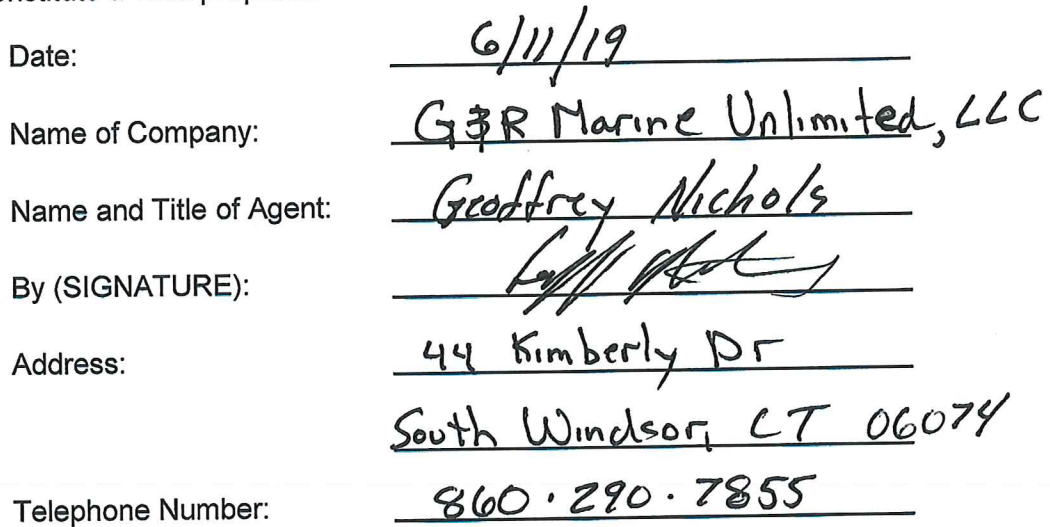 Date: 6/11/19
Name of Company: G&R Marine Unlimited, LLC
Name and Title of Agent: Geoffrey Nichols
By (SIGNATURE):
Address: 44 Kimberly Dr
South Windsor, CT 06074
Telephone Number: 860·290·7855